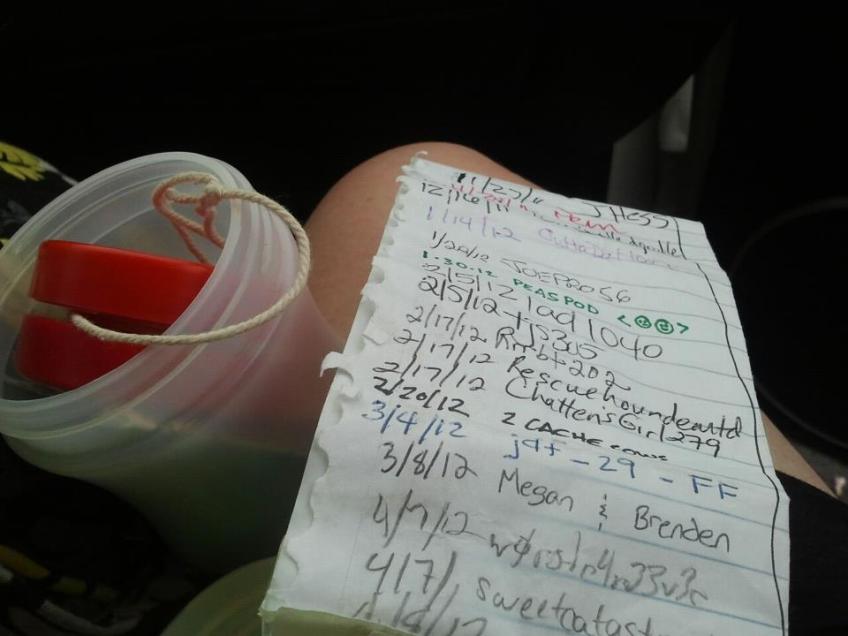 11/27/11 JHess
12/16/11
1/14/12
1/20/12 JOEPRO56
1.30.12 PEASPOD
2/5/12 lad1040
2/5/12 tjs305
2/17/12 Rmbt202
2/17/12 Rescuehoundeautd
2/17/12 ChattensGirl279
2/20/12 2 CACHE COWS
3/4/12 j4f-29 - FF
3/8/12 Megan & Brenden
4/7/12
4/7/ sweetcatast